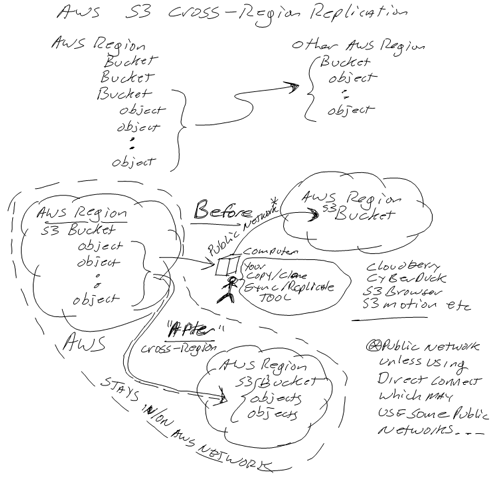 AWS S3 Cross-Region Replication
AWS Region
Bucket
Bucket
Bucket
object
object
object
Other AWS Region
Bucket
object
object
AWS Region
S3 Bucket
object
object
object
AWS
Before
Public Network*
AWS Region
S3 Bucket
Computer
Your
Copy/Clone
Sync/Replicate
TOOL
Cloudberry
CyberDuck
S3Browser
S3motion etc
"After"
Cross-Region
AWS Region
S3 Bucket
objects
objects
STAYS IN/ON AWS NETWORK
*Public Network
unless using
Direct Connect
which may
use some Public
Networks....